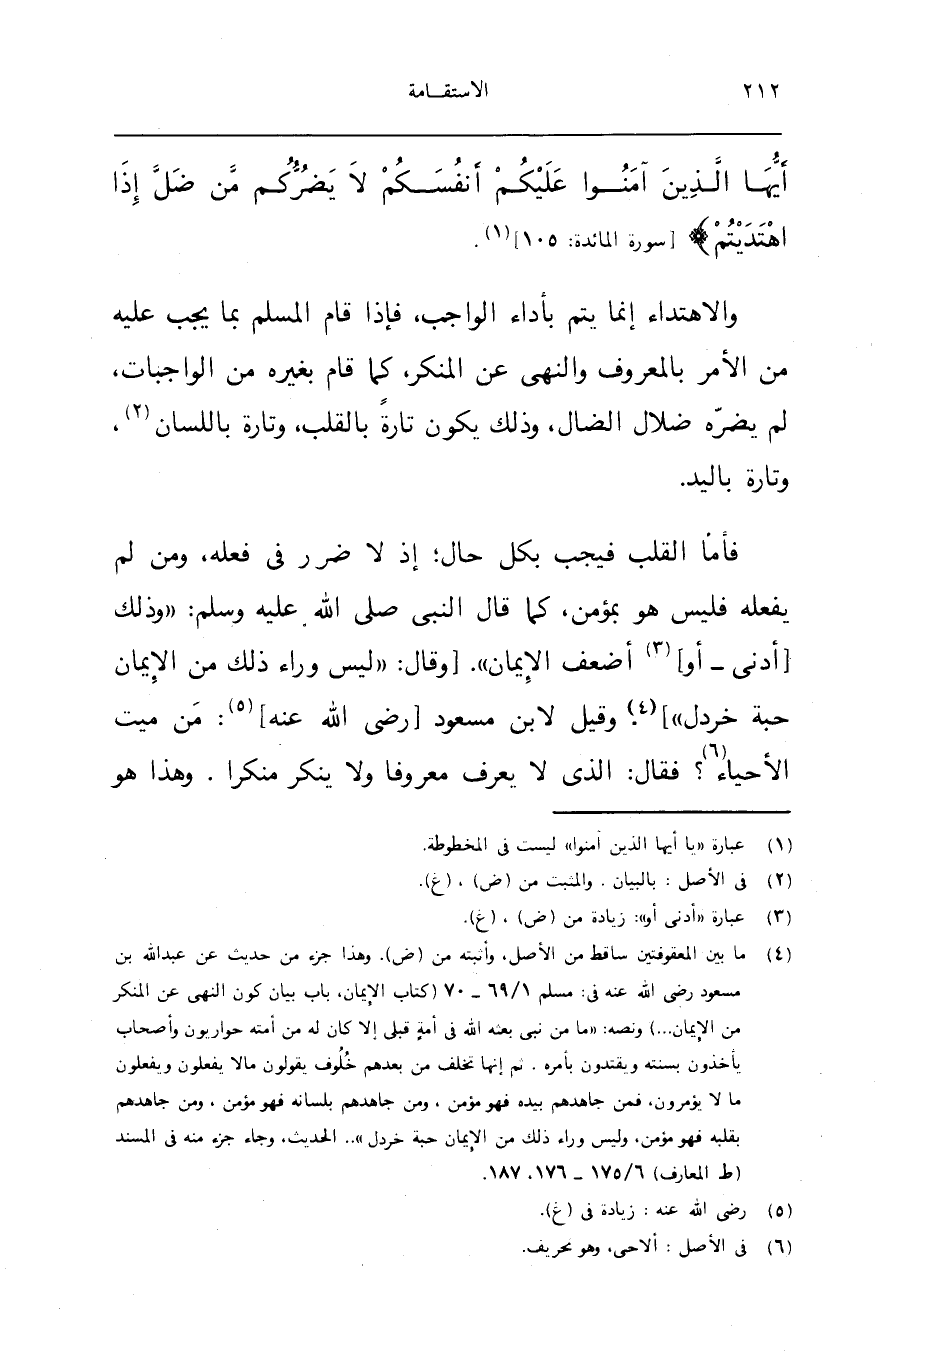 ٢١٢ الاستقـامة
أَيُّهَا الَّذِينَ آمَنُوا عَلَيْكُمْ أَنفُسَكُمْ لاَ يَضُرُّكُم مَّن ضَلَّ إِذَا
اهْتَدَيْتُمْ﴾ [سورة المائدة: ١٠٥](١).
والاهتداء إنما يتم بأداء الواجب، فإذا قام المسلم بما يجب عليه
من الأمر بالمعروف والنهى عن المنكر، كما قام بغيره من الواجبات،
لم يضرّه ضلال الضال، وذلك يكون تارةً بالقلب، وتارة باللسان(٢)،
وتارة باليد.
فأما القلب فيجب بكل حال؛ إذ لا ضرر فى فعله، ومن لم
يفعله فليس هو بمؤمن، كما قال النبى صلى الله عليه وسلم: «وذلك
[أدنى ـ أو](٣) أضعف الإيمان». [وقال: «ليس وراء ذلك من الإيمان
حبة خردل»](٤). وقيل لابن مسعود [رضى الله عنه](٥): مَن ميت
الأحياء(٦)؟ فقال: الذى لا يعرف معروفا ولا ينكر منكرا . وهذا هو
(١) عبارة «يا أيها الذين آمنوا» ليست فى المخطوطة.
(٢) فى الأصل : بالبيان . والمثبت من (ض) ، (غ).
(٣) عبارة «أدنى أو»: زيادة من (ض) ، (غ).
(٤) ما بين المعقوفتين ساقط من الأصل، وأثبته من (ض). وهذا جزء من حديث عن عبدالله بن
مسعود رضى الله عنه فى: مسلم ٦٩/١ ـ ٧٠ (كتاب الإيمان، باب بيان كون النهى عن المنكر
من الإيمان...) ونصه: «ما من نبى بعثه الله فى أمةٍ قبلى إلا كان له من أمته حواريون وأصحاب
يأخذون بسنته ويقتدون بأمره . ثم إنها تخلف من بعدهم خُلُوف يقولون مالا يفعلون ويفعلون
ما لا يؤمرون، فمن جاهدهم بيده فهو مؤمن ، ومن جاهدهم بلسانه فهو مؤمن ، ومن جاهدهم
بقلبه فهو مؤمن، وليس وراء ذلك من الإيمان حبة خردل».. الحديث، وجاء جزء منه فى المسند
(ط المعارف) ١٧٥/٦ ـ ١٧٦، ١٨٧.
(٥) رضى الله عنه : زيادة فى (غ).
(٦) فى الأصل : ألاحى، وهو تحريف.